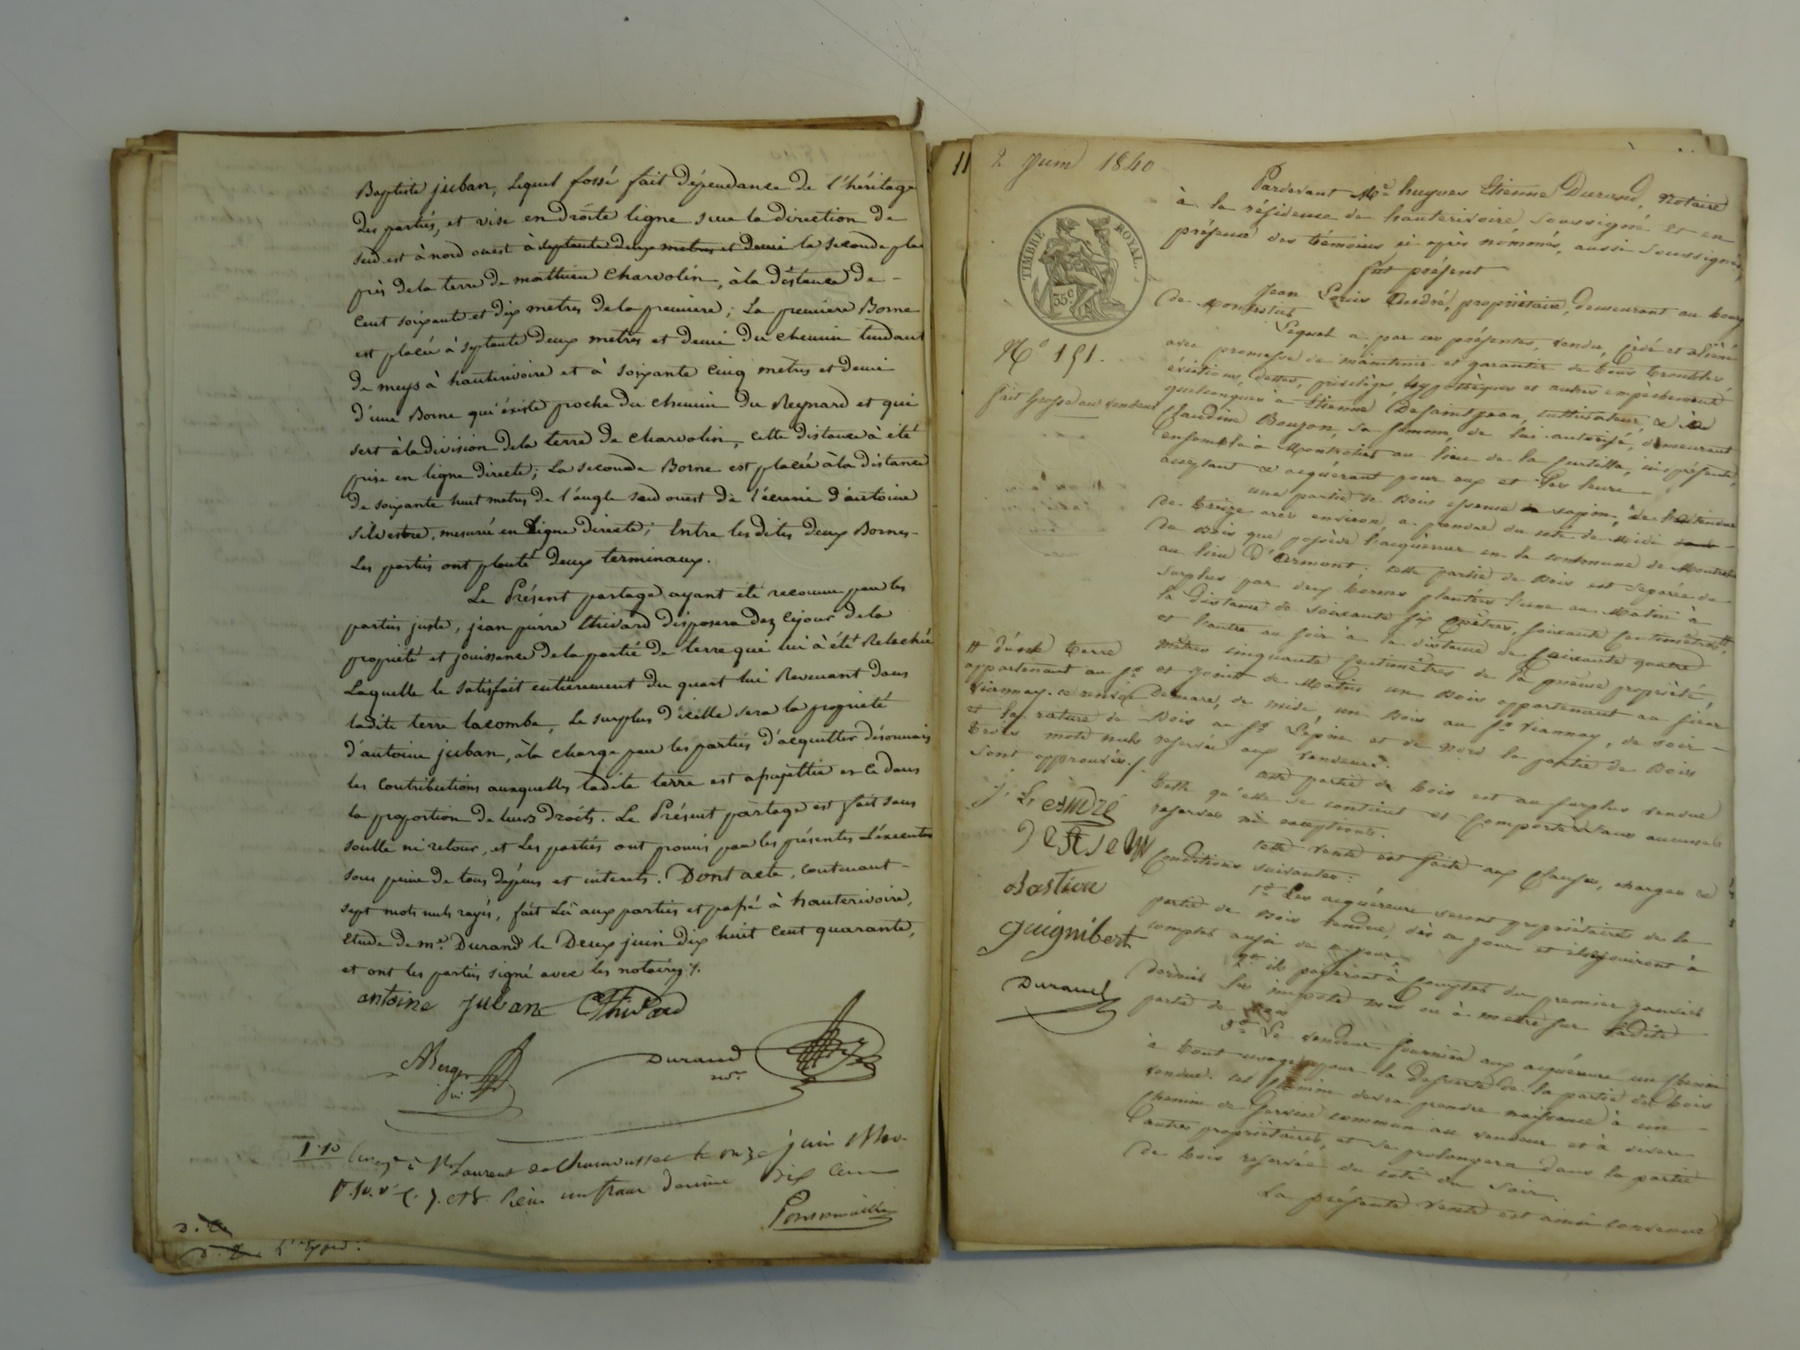 Baptiste juban, lequel fossé fait dépendance de l'héritage
des parties, et vise en droite ligne sur la direction de
sud est à nord ouest à septante deux metres et demie la seconde plus
près de la terre de mathieu Charvolin, à la distance de -
cent soixante et dix metres de la premiere; La premiere Borne
est placée à septante deux metres et demie du chemin tendant
de meys à hauterivoire et à soixante cinq metres et demie
d'une Borne qui existe proche du chemin du Reynard et qui
sert à la division de la terre de charvolin, cette distance à été
prise en ligne directe; La seconde Borne est placée à la distance
de soixante huit metres de l'angle sud ouest de l'écurie d'antoine
Silvestre, mesurée en Ligne directe; Entre les dites deux Bornes-
Les parties ont planté deux terminaux.
Le Présent partage ayant été reconnu par les
parties juste, jean pierre thivard disposera dez cejour de la
propriété et jouissance de la partie de terre qui lui à été Relachée
Laquelle le satisfait entièrement du quart lui Revenant dans
ladite terre lacombe, Le surplus d'icelle sera la propriété
d'antoine juban, à la charge par les parties d'acquitter désormais
les contributions auxquelles ladite terre est assujettie et ce dans
la proportion de leurs droits. Le Présent partage est fait sans
soulte ni retour, et Les parties ont promis par les présentes L'exécuter
sous peine de tous dépens et interets. Dont acte, contenant -
sept mots nuls rayés, fait Lû aux parties et passé à hauterivoire,
etude de me. Durand le Deux juin dix huit cent quarante,
et ont les parties signé avec les notaires
antoine juban Thivard
Berger
Durand
nre.
juin
Laurent de Chamousset le onze
dix
2 juin 1840
Pardevant Me hugues Etienne Durand, Notaire
à la résidence de hauterivoire, soussigné et en
présence des témoins ci après nommés, aussi soussignés,
fut présent
Jean Louis André, propriétaire, demeurant au bourg
de Montrotier
TIMBRE ROYAL.
35c
No 151.
Lequel a par ces présentes, vendu, cédé et aliéné
avec promesse de maintenir et garantir de tous troubles,
évictions, dettes, privilèges, hypothèques et autres empêchement
quelconques à Etienne Desaintjean, cultivateur, &
Claudine Boujon, sa femme, de lui autorisée, demeurant
ensemble à Montrotier au lieu de la Curtilla, ici présents,
acceptant & acquérant pour eux et les leurs -
une partie de Bois essence sapin, de l'étendue
de treize ares environ, a prendre du coté de Midi
du Bois que possède en la commune de Montrotier
au lieu d'Ormont; cette partie de Bois est séparée du
surplus par deux bornes plantées l'une au Matin à
la distance de soixante six mètres, soixante centimètres
et l'autre au soir à la distance de soixante quatre
mètres cinquante centimètres de la même propriété,
et joint de Matin un Bois appartenant au sieur
de midi un Bois au sr Viannay, de soir -
Bois au sr Lépine et de nord la partie de Bois
reservée aux vendeurs.
# d'une terre
appartenant au sr
Viannay. ce renvoi
et la rature de
trois mots nuls
sont approuvés.
J. L. André
Bastion
Guignibert
Durand
cette partie de bois est au surplus vendue
telle qu'elle se contient et comporte sans aucunes
reserves ni exceptions.
cette vente est faite aux clauses, charges &
Conditions suivantes:
1o Les acquéreurs seront propriétaires de la
partie de Bois vendue, dès ce jour et en jouiront à
compter aussi de ce jour.
2o ils payeront à compter du premier janvier
dernier les impots mis ou à mettre sur ladite
partie de Bois
3o Le vendeur fournira aux acquéreurs un chemin
à tout usage pour la desserte de la partie de bois
vendue. cet chemin devra prendre naissance à un -
chemin de commun au vendeur et à divers
autres propriétaires, et se prolongera dans la partie
de bois reservée du coté du soir.
La présente vente est ainsi consentie